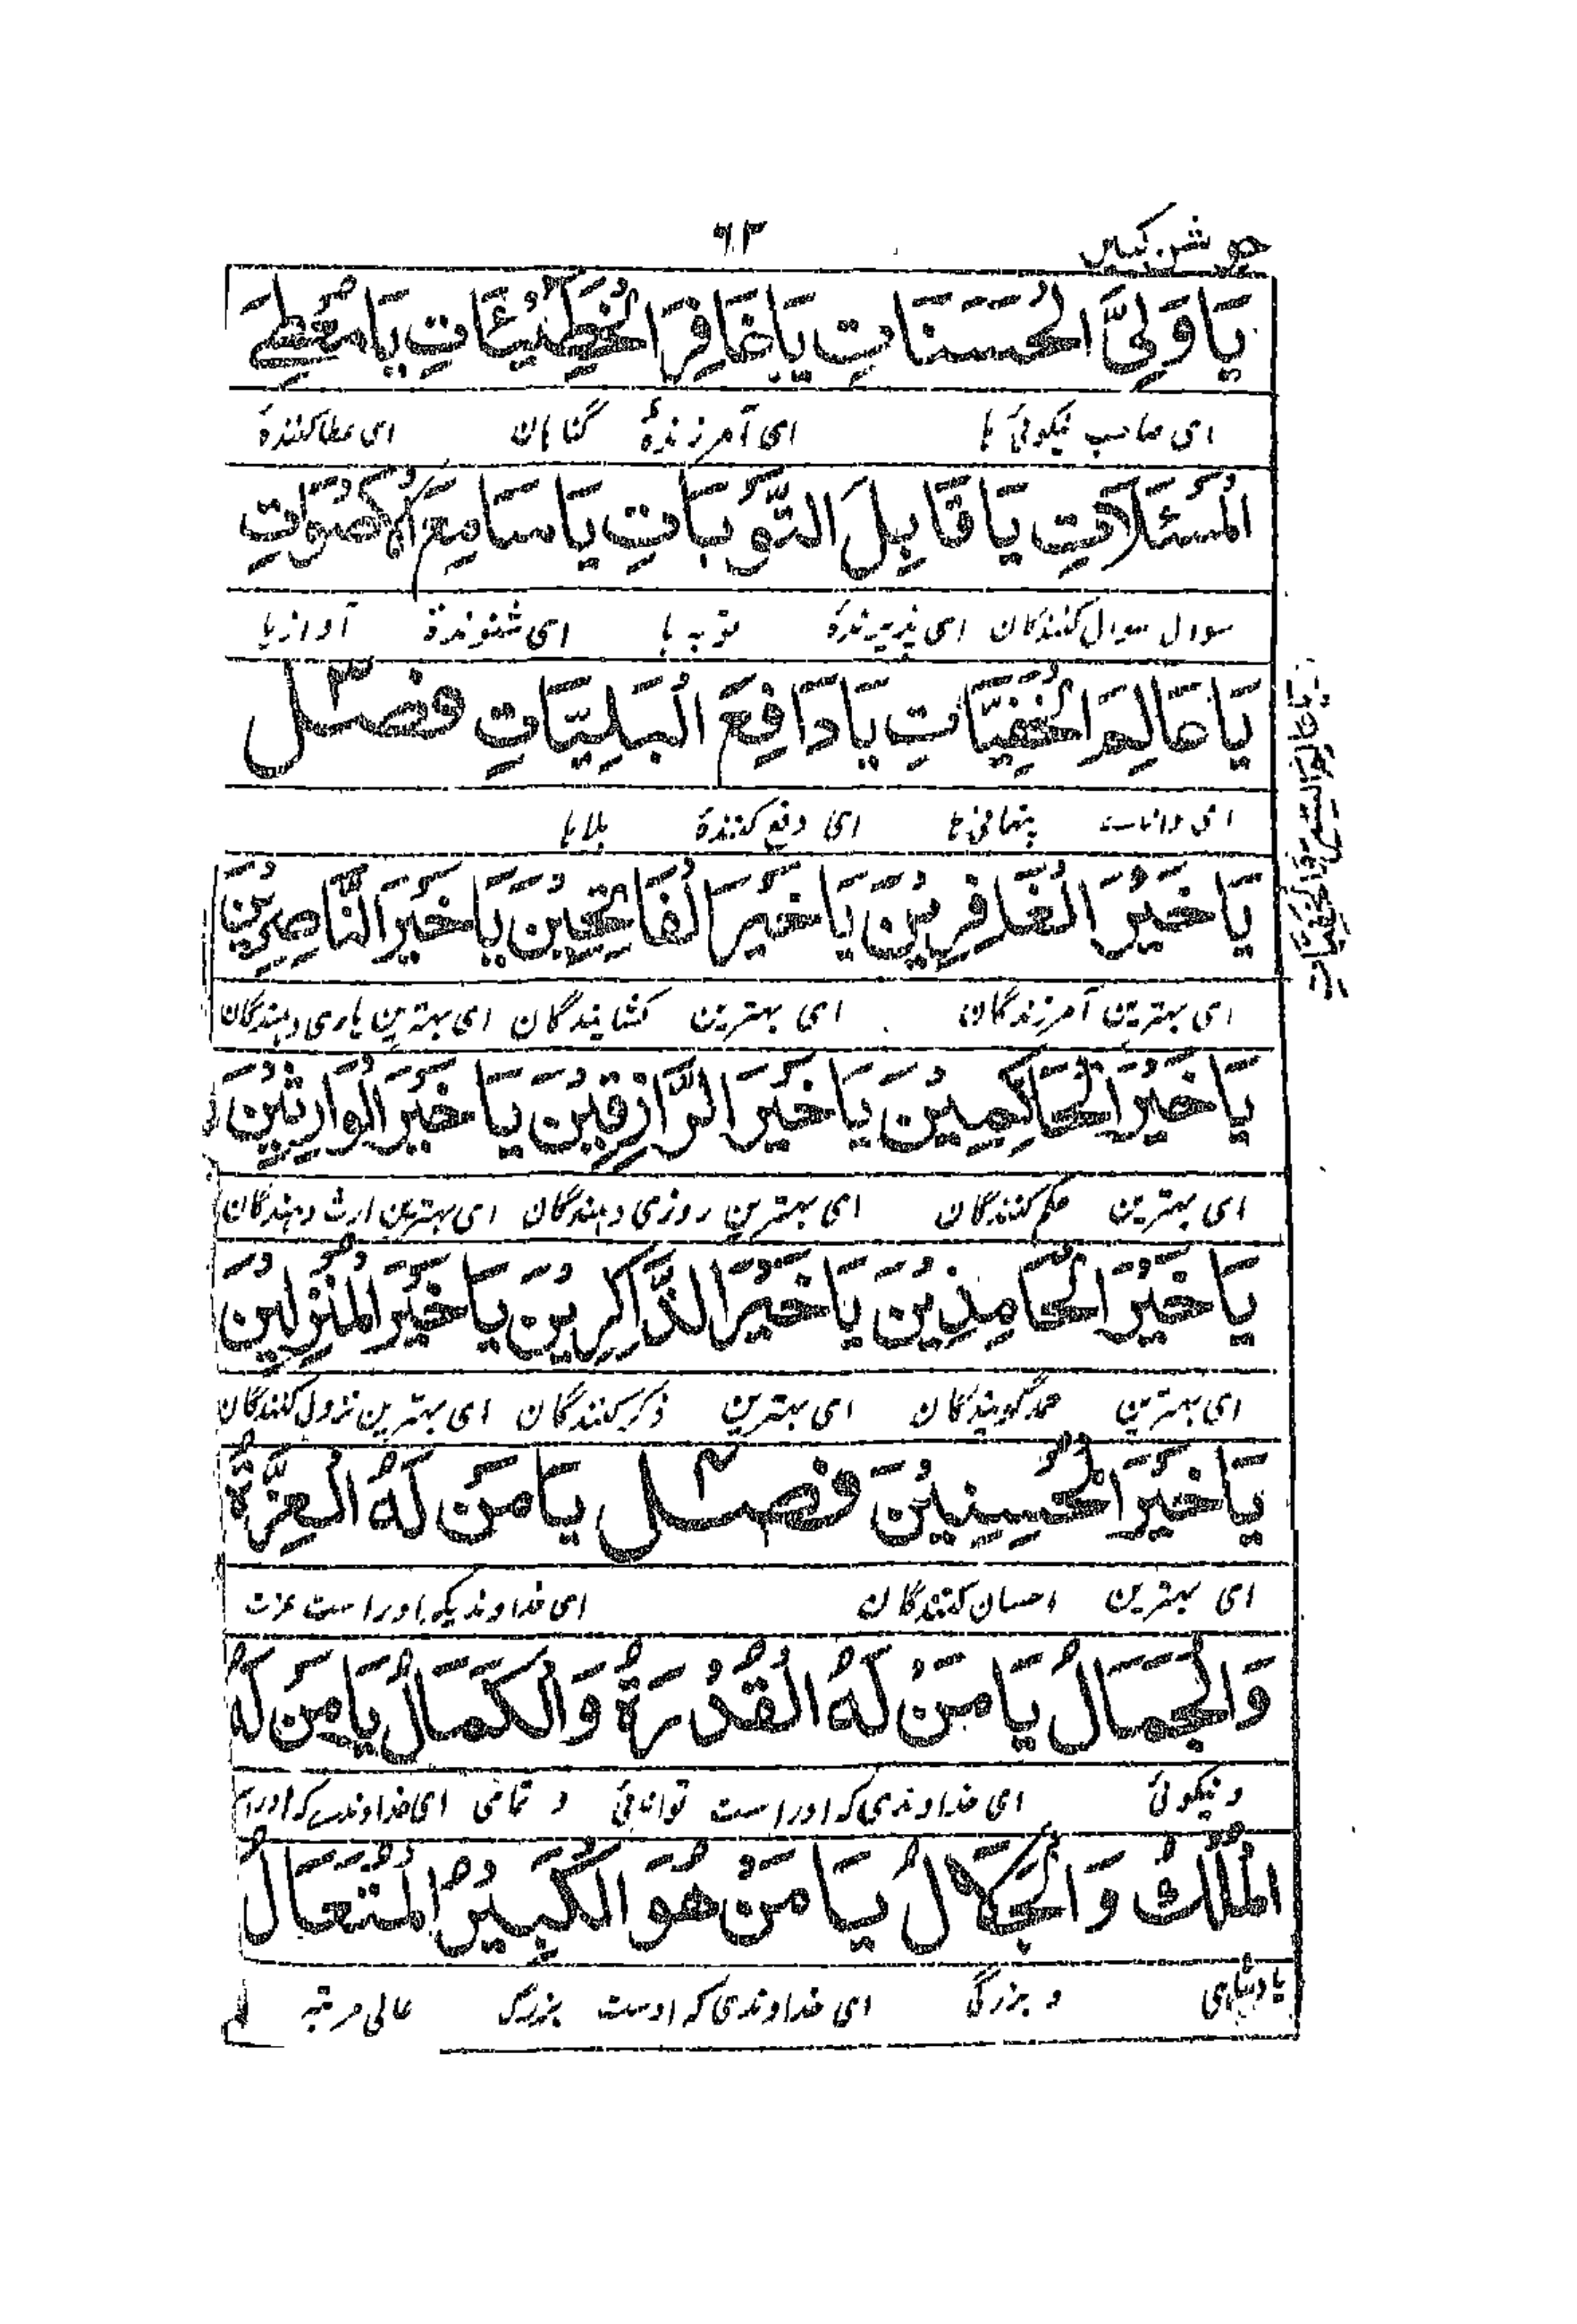 جوشن کبیر
٦٣
يَا وَلِيَّ الْحَسَنَاتِ يَا غَافِرَ الْخَطِيئَاتِ يَا مُعْطِيَ
ای صاحب نیکوئی ها ای آمرزندهٔ گناهان ای عطاکنندهٔ
الْمَسْئَلَاتِ يَا قَابِلَ التَّوْبَاتِ يَا سَامِعَ الْأَصْوَاتِ
سوال سوال کنندگان ای پذیرندهٔ توبه ها ای شنوندهٔ آوازها
يَا عَالِمَ الْخَفِيَّاتِ يَا دَافِعَ الْبَلِيَّاتِ فصل ٣
ای دانای پنهانی ها ای دفع کنندهٔ بلاها
يَا خَيْرَ الْغَافِرِينَ يَا خَيْرَ الْفَاتِحِينَ يَا خَيْرَ النَّاصِرِينَ
ای بهترین آمرزندگان ای بهترین کشایندگان ای بهترین یاری دهندگان
يَا خَيْرَ الْحَاكِمِينَ يَا خَيْرَ الرَّازِقِينَ يَا خَيْرَ الْوَارِثِينَ
ای بهترین حکم کنندگان ای بهترین روزی دهندگان ای بهترین ارث دهندگان
يَا خَيْرَ الْحَامِدِينَ يَا خَيْرَ الذَّاكِرِينَ يَا خَيْرَ الْمُنْزِلِينَ
ای بهترین حمد گویندگان ای بهترین ذکر کنندگان ای بهترین نزول کنندگان
يَا خَيْرَ الْمُحْسِنِينَ فصل ٤ يَا مَنْ لَهُ الْعِزَّةُ
ای بهترین احسان کنندگان ای خداوندیکه اوراست عزت
وَالْجَمَالُ يَا مَنْ لَهُ الْقُدْرَةُ وَالْكَمَالُ يَا مَنْ لَهُ
و نیکوئی ای خداوندی که اوراست توانائی و تمامی ای خداوندے که اوراست
الْمُلْكُ وَالْجَلَالُ يَا مَنْ هُوَ الْكَبِيرُ الْمُتَعَالُ
پادشاهی و بزرگی ای خداوندی که اوست بزرگ عالی مرتبه